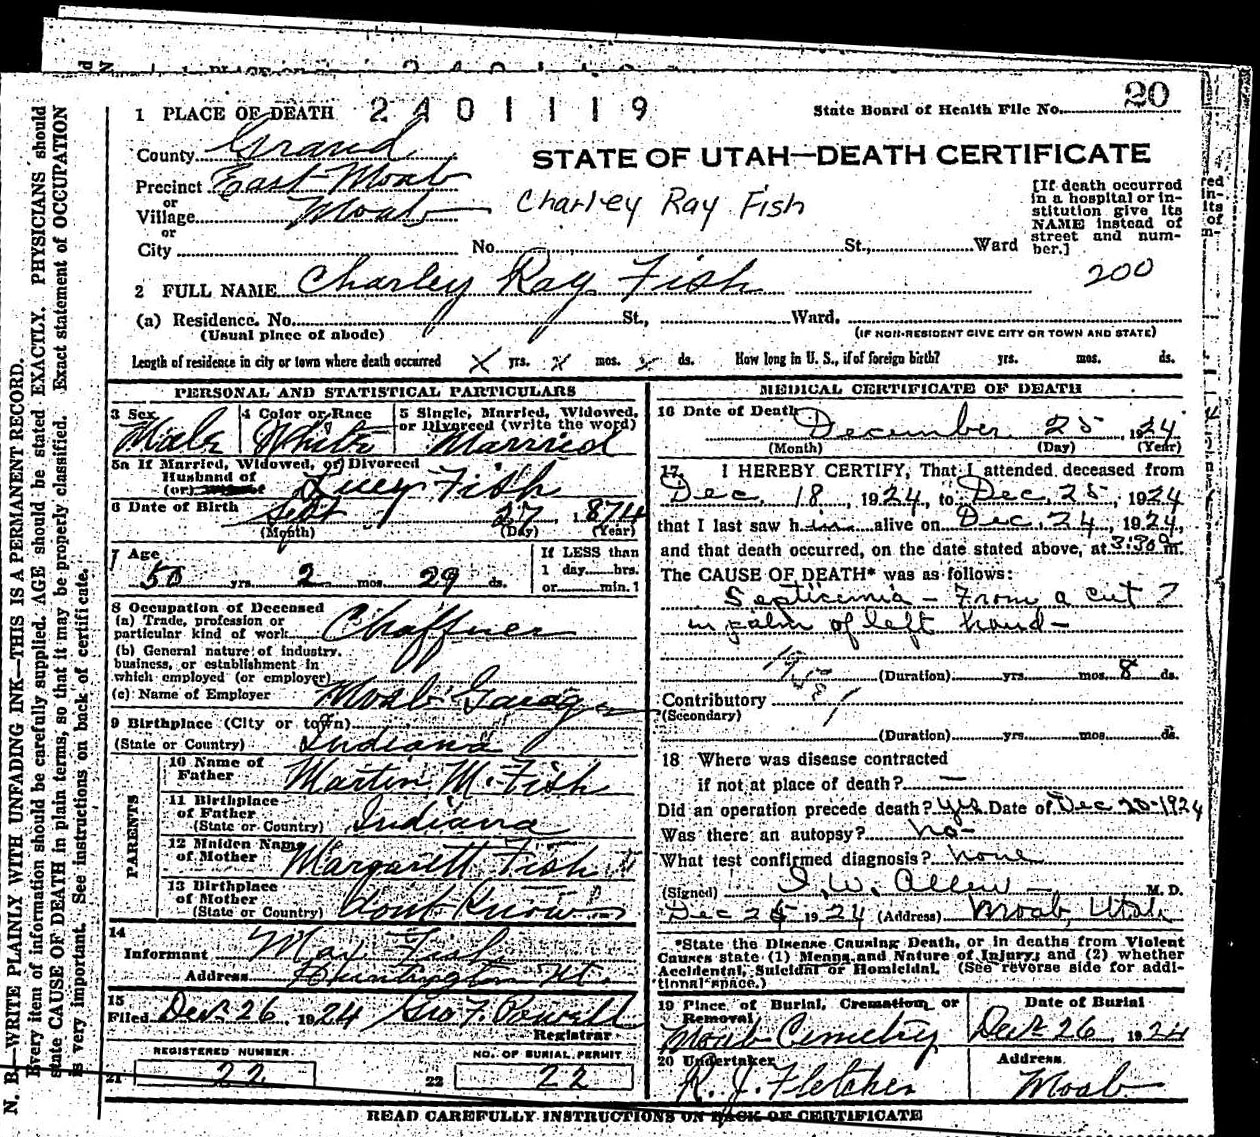 1 PLACE OF DEATH 2401119 State Board of Health File No. 20
County Grand
STATE OF UTAH—DEATH CERTIFICATE
Precinct East Moab
or
Village Moab
Charley Ray Fish
or
City No. St., Ward
[If death occurred in a hospital or in-
stitution give its
NAME instead of
street and num-
ber.]
200
2 FULL NAME Charley Ray Fish
(a) Residence. No. St., Ward.
(Usual place of abode) (IF NON-RESIDENT GIVE CITY OR TOWN AND STATE)
Length of residence in city or town where death occurred X yrs. X mos. X ds. How long in U. S., if of foreign birth? yrs. mos. ds.
PERSONAL AND STATISTICAL PARTICULARS
3 Sex Male
4 Color or Race White
5 Single, Married, Widowed,
or Divorced (write the word)
Married
5a If Married, Widowed, or Divorced
Husband of
(or)
Lucy Fish
6 Date of Birth Sept 27 1874
(Month) (Day) (Year)
7 Age
50 yrs. 2 mos. 29 ds.
If LESS than
1 day hrs.
or min.?
8 Occupation of Deceased
(a) Trade, profession or
particular kind of work Chaffuer
(b) General nature of industry,
business, or establishment in
which employed (or employer)
(c) Name of Employer Moab Garage
9 Birthplace (City or town)
(State or Country) Indiana
PARENTS
10 Name of
Father Martin M. Fish
11 Birthplace
of Father
(State or Country) Indiana
12 Maiden Name
of Mother Margarett Fish
13 Birthplace
of Mother
(State or Country) dont Know
14
Informant Max Fish
Address Huntington Ut.
15
Filed Dec 26 1924 Geo F. Powell
Registrar
REGISTERED NUMBER
21 22
NO. OF BURIAL PERMIT
22 22
MEDICAL CERTIFICATE OF DEATH
16 Date of Death
December 25, 1924
(Month) (Day) (Year)
17. I HEREBY CERTIFY, That I attended deceased from
Dec. 18, 1924, to Dec. 25, 1924
that I last saw him alive on Dec. 24, 1924,
and that death occurred, on the date stated above, at 3:30 m.
The CAUSE OF DEATH* was as follows:
Septicemia - From a cut ?
in palm of left hand-
(Duration) yrs. mos. 8 ds.
Contributory
(Secondary)
(Duration) yrs. mos. ds.
18 Where was disease contracted
if not at place of death? —
Did an operation precede death? yes Date of Dec 20-1924
Was there an autopsy? no-
What test confirmed diagnosis? none
(Signed) I. W. Allen M. D.
Dec 26 1924 (Address) Moab, Utah
*State the Disease Causing Death, or in deaths from Violent
Causes state (1) Means and Nature of Injury; and (2) whether
Accidental, Suicidal or Homicidal. (See reverse side for addi-
tional space.)
19 Place of Burial, Cremation, or
Removal
Moab Cemetry
Date of Burial
Dec 26 1924
20 Undertaker
R. J. Fletcher
Address
Moab
READ CAREFULLY INSTRUCTIONS ON BACK OF CERTIFICATE
N. B.—WRITE PLAINLY WITH UNFADING INK—THIS IS A PERMANENT RECORD.
Every item of information should be carefully supplied. AGE should be stated EXACTLY. PHYSICIANS should
state CAUSE OF DEATH in plain terms, so that it may be properly classified. Exact statement of OCCUPATION
is very important. See instructions on back of certificate.